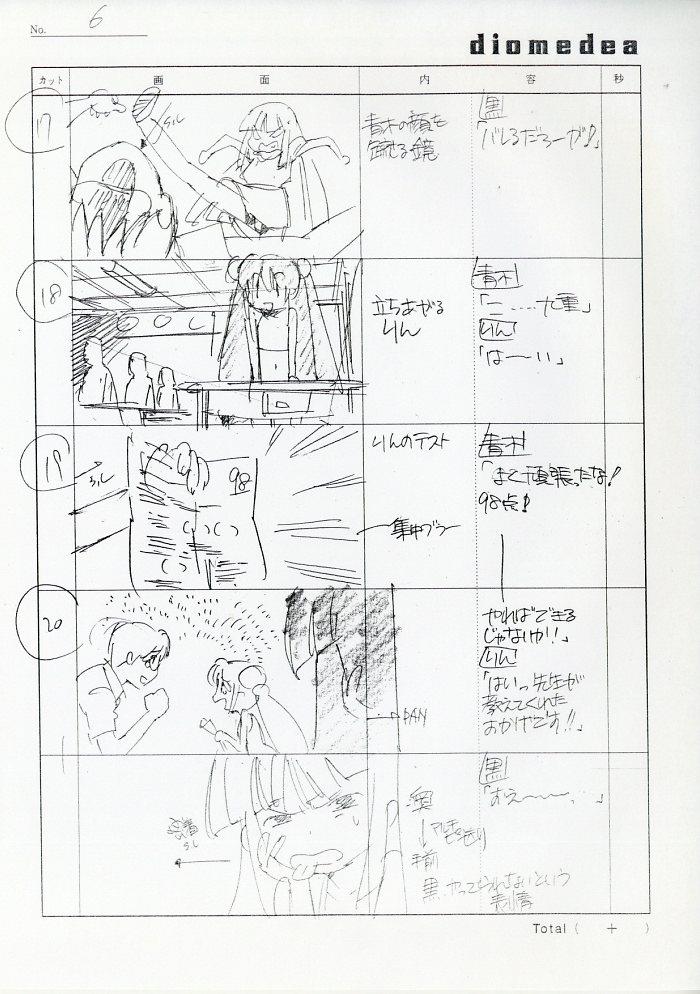 No. 6
diomedea
カット 画 面 内 容 秒
17
S.L
青木の顔を
鏡
黒
「バレるだろーが♪」
18
立ちあがる
りん
青木
「こ……九重」
りん
「は〜い」
19
S.L
98
りんのテスト
集中ブラー
青木
「よく頑張ったな!
98点♪
20
PAN
やればできる
じゃないか!!」
りん
「はいっ先生が
教えてくれた
おかげです!!」
S.L
奥
↓
手前
黒 やってられないという
表情
黒
「おえ〜〜」
Total ( + )